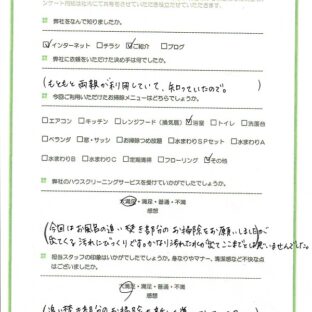 ンケート内容は社内にて共有させていただき役立たせていただきます。
弊社をなんで知りましたか。
インターネット □チラシ ご紹介 □ブログ
弊社に依頼をいただけた決め手は何でしたか。
(もともと両親が利用していて、知っていたので。)
今回ご利用いただけたお掃除メニューはどちらでしょうか。
□エアコン □キッチン □レンジフード(換気扇) 浴室 □トイレ □洗面台
□ベランダ □窓・サッシ □お掃除つめ放題 □水まわりSPセット □水まわりA
□水まわりB □水まわりC □定期清掃 □フローリング その他
弊社のハウスクリーニングサービスを受けていかがでしたでしょうか。
大満足・満足・普通・不満
感想
(今回はお風呂の追い焚き部分のお掃除をお願いしましたが
出てくる汚れにびっくりです。かなり汚れたものが出てここまでとは思いませんでした。
担当スタッフの印象はいかがでしたでしょうか。身なりやマナー、清潔感など不快な点
はございましたか。
大満足・満足・普通・不満
感想